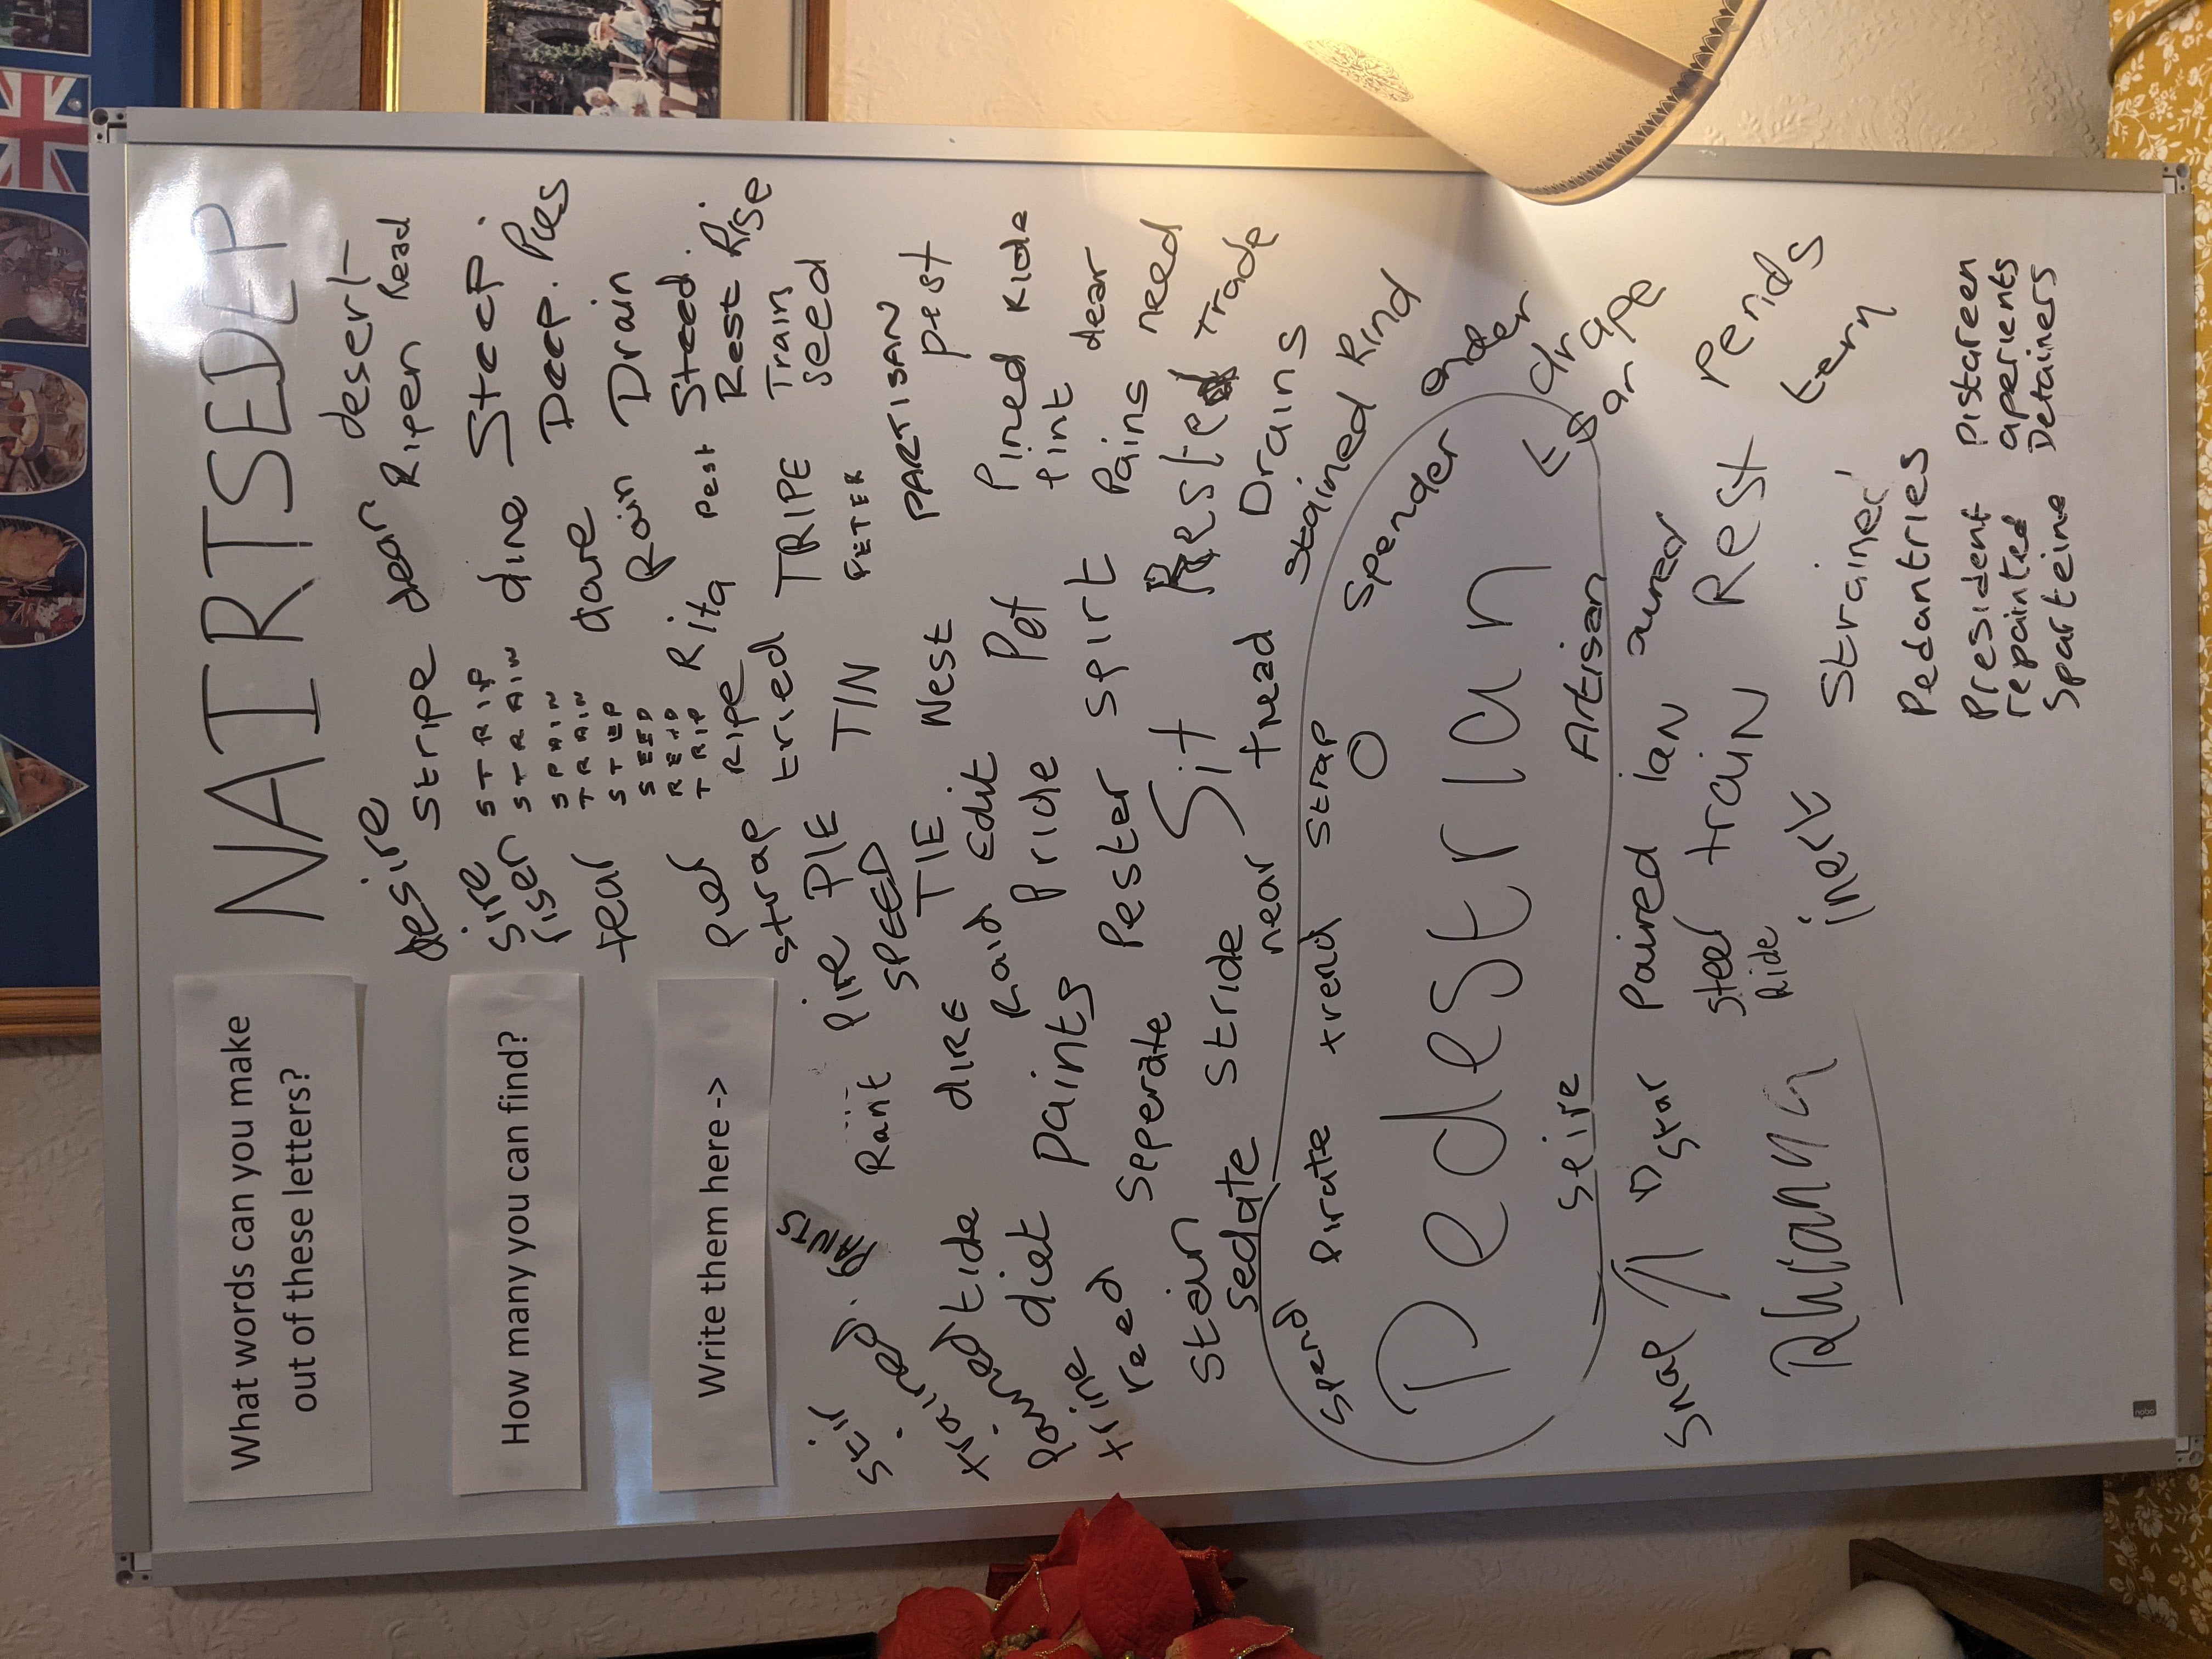 What words can you make
out of these letters?
How many you can find?
Write them here ->
NAIRTSEDEP
desire desert
stripe dear Ripen Read
Sire STRIP dine Steep.
riser STRAIN
SPAIN Deep. Pies
TRAIN
tear STEP Rain Drain
SEED
REID Rita Pest Steed.
TRIP
Ripe Rest Rise
strap tried TRIPE Train
Pine PIE TIN FETER seed
PANTS
Rant SPEED
stir TIE Nest PARTISAN pest
tide DIRE Raid Edit Pet Pined Ride
diet paints Pride tint dear
reed Seperate Pester spirt Pains need
Stain Sit trade
Sedate stride near tread Drains
stained Rind
Spend Pirate strap Spender
Pedestrian
seire Artisan drape
Snap star Paired Ian
steed train Rest Perids
Ride
Rhianna inert tern
Strained
Pedantries
President Pistareen
repainted aperients
Sparteine Detainers
nobo